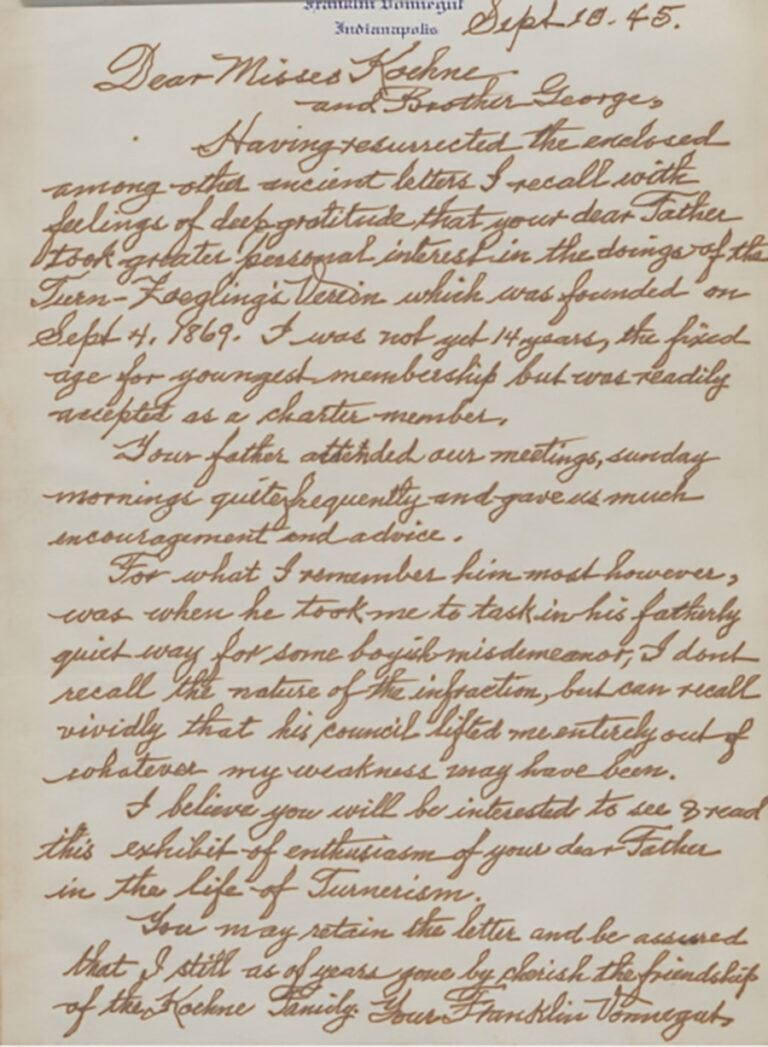 Franklin Vonnegut
Indianapolis
Sept 10. 45.
Dear Misses Koehne
and Brother George,
Having resurrected the enclosed
among other ancient letters I recall with
feelings of deep gratitude that your dear Father
took greater personal interest in the doings of the
Turn-Zoegling's Verein which was founded on
Sept 4. 1869. I was not yet 14 years, the fixed
age for youngest membership but was readily
accepted as a charter member.
Your father attended our meetings, sunday
mornings quite frequently and gave us much
encouragement and advice.
For what I remember him most however,
was when he took me to task in his fatherly
quiet way for some boyish misdemeanor, I dont
recall the nature of the infraction, but can recall
vividly that his council lifted me entirely out of
whatever my weakness may have been.
I believe you will be interested to see & read
this exhibit of enthusiasm of your dear Father
in the life of Turnerism.
You may retain the letter and be assured
that I still as of years gone by cherish the friendship
of the Koehne Family. Your Franklin Vonnegut